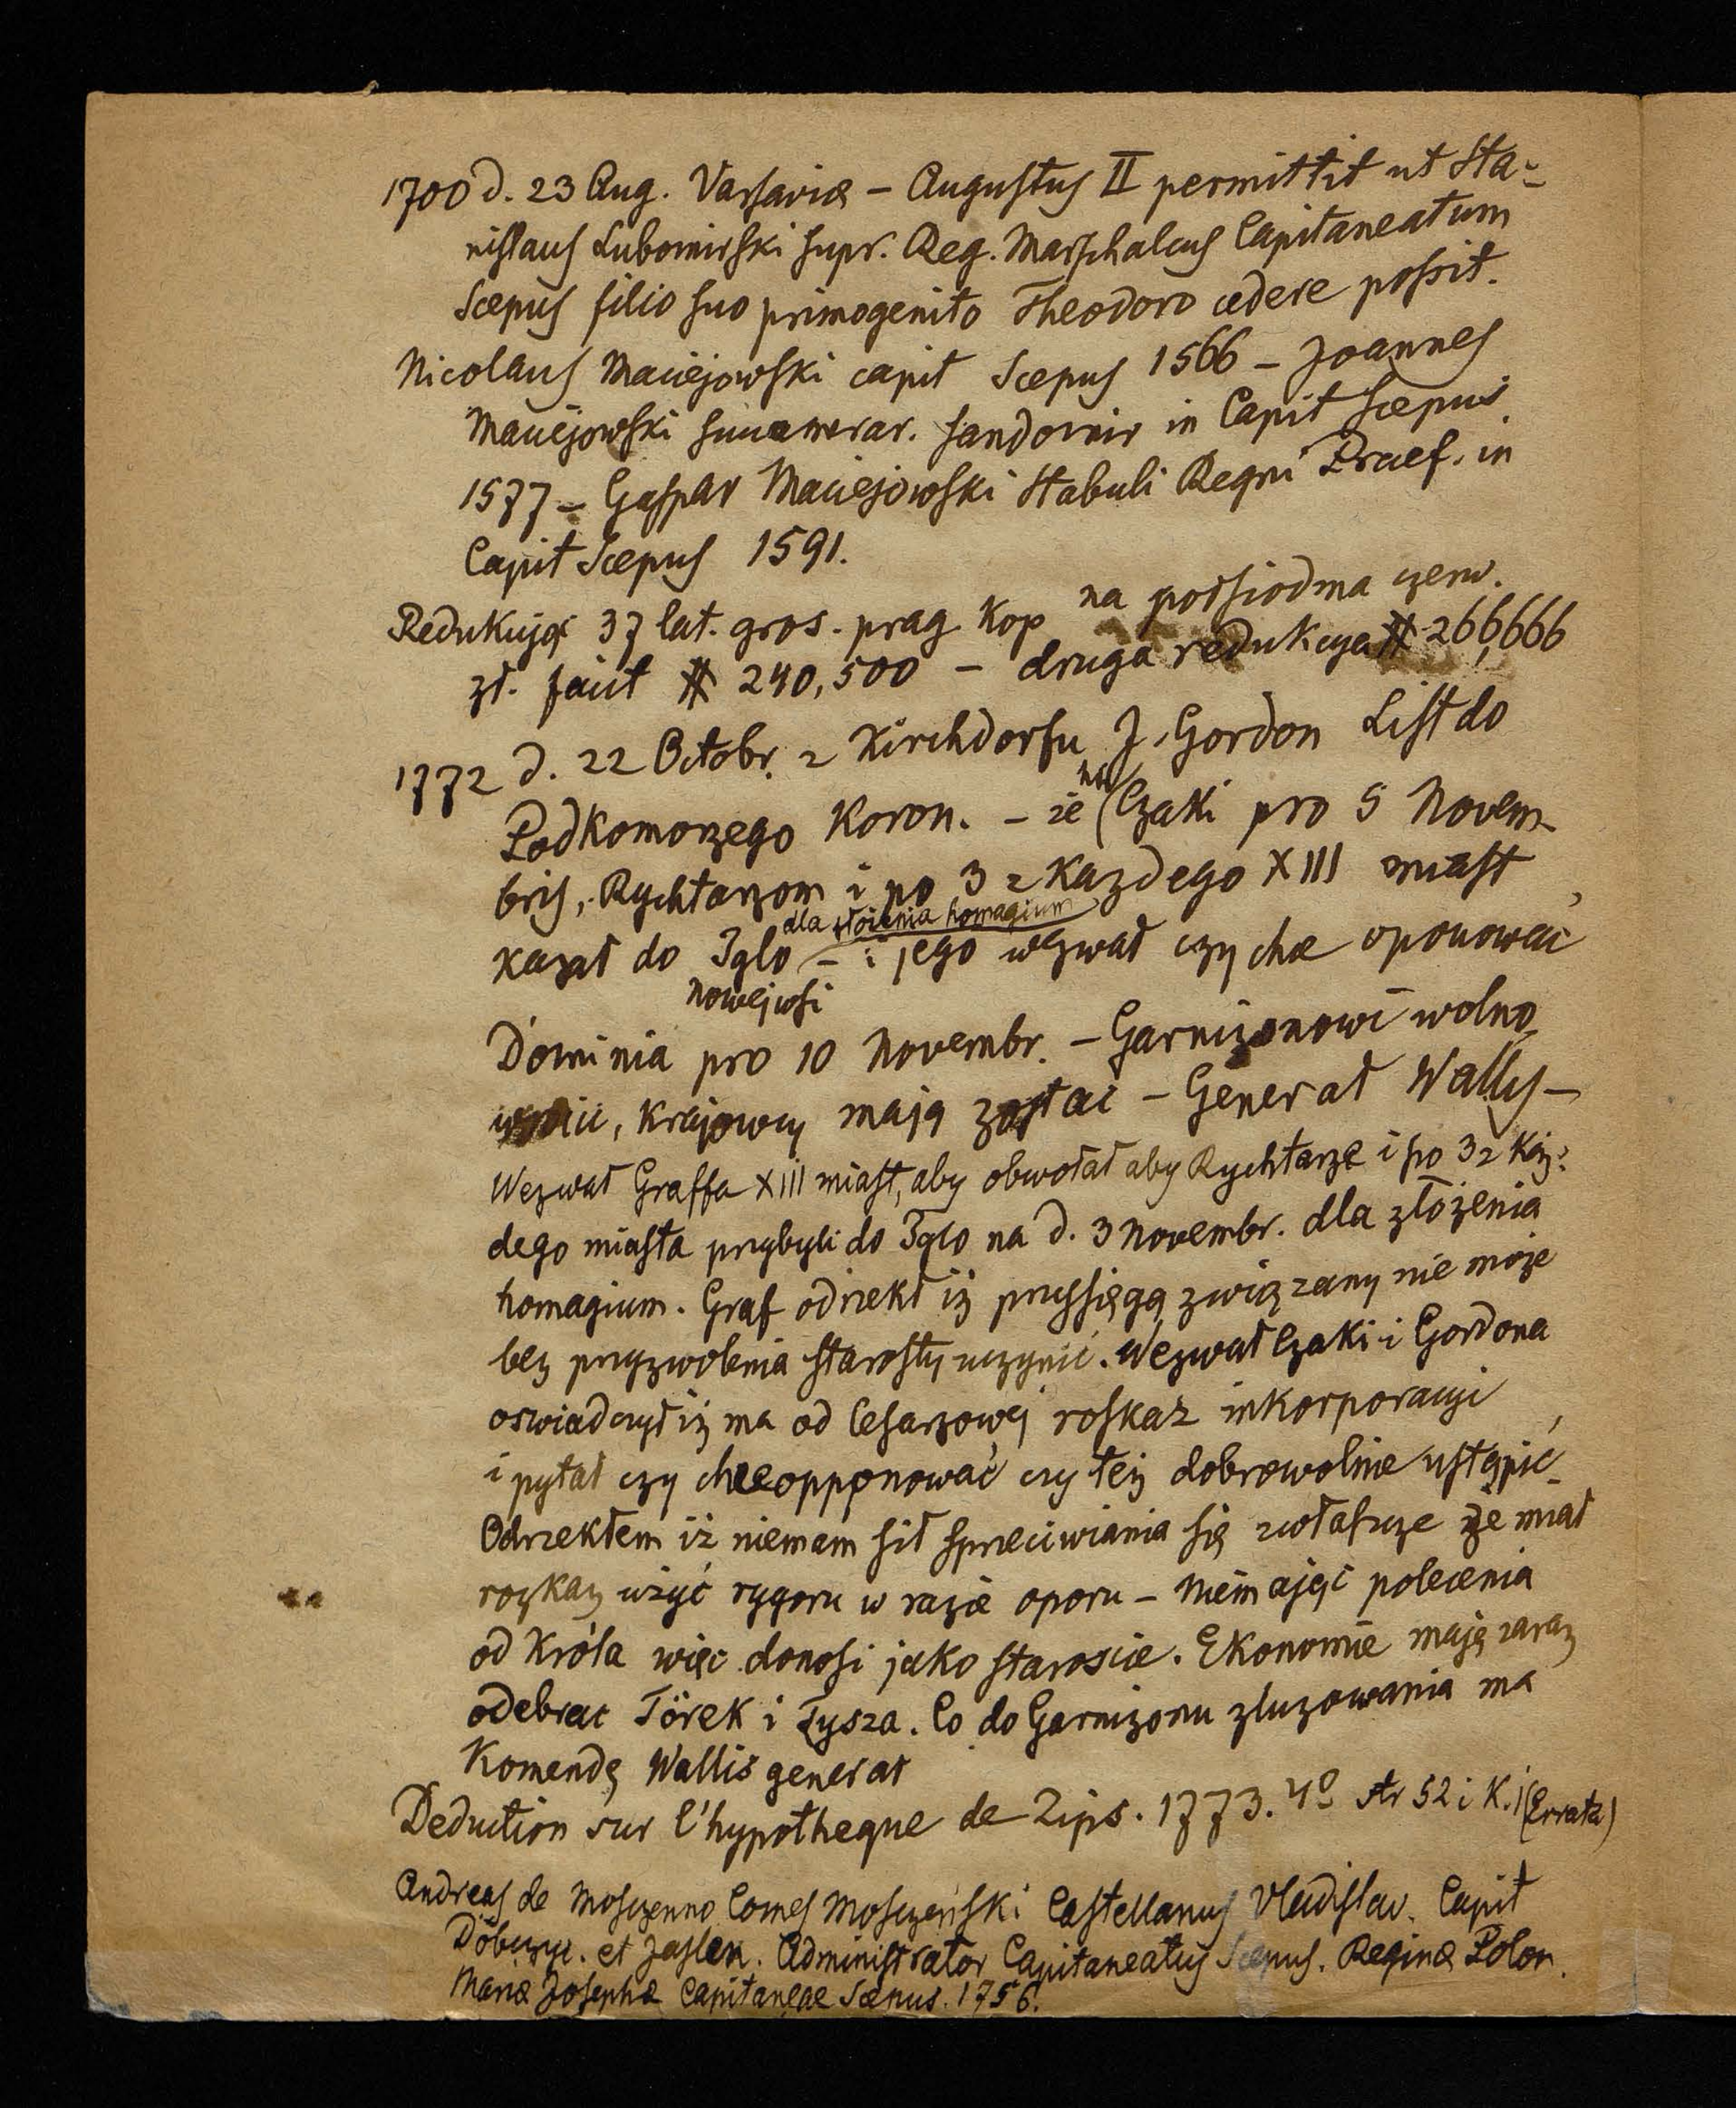 1700 d. 23 Aug. Varsaviæ – Augustus II permittit ut Sta-
nislaus Lubomirski supr. Reg. Marschalcus Capitaneatum
Scepus filio suo primogenito Theodoro cedere possit.
Nicolaus Maciejowski capit Scepus 1566 – Joannes
Maciejowski succamerar. Sandomir in Capit Scepus.
1577 – Gaspar Maciejowski Stabuli Regni Praef. in
Capit Scepus 1591.
Redukując 37 lat. gros. prag kop na półsiodma czerw.
zł. facit # 240,500 – druga redukcya # 266,666
1772 d. 22 Octobr. z Kirchdorfu J. Gordon List do
Podkomorzego Koron. – że (Czaki pro 5 Novem-
bris, Rychtarzom i po 3 z Kazdego XIII miast
dla złożenia homagium
kazał do Iglo – i jego wezwał czy chce oponować
Nowejwsi
Dominia pro 10 Novembr. – Garnizonowi wolno
wyniść, Krajowcy mają zostać – Generał Wallis –
Wezwał Graffa XIII miast, aby obwołał aby Rychtarze i po 3 z Każ-
dego miasta przybyli do Iglo na d. 3 Novembr. dla złożenia
homagium. Graf odrzekł iż przysięgą związany nie może
bez przyzwolenia starosty uczynić. Wezwał Czaki i Gordona
oswiadczył iż ma od Cesarzowej roskaz inkorporacyi
i pytał czy chce opponować czy też dobrowolnie ustąpić
Odrzekłem iż niemam sił sprzeciwiania się zwłaszcze że miał
rozkaz użyć rygoru w razie oporu – Niemając polecenia
od Króla więc donosi jako staroscie. Ekonomie mają zaraz
odebrac Török i Tysza. Co do Garnizonu zluzowania ma
Komendę Wallis generał
Deduction sur l'hypotheque de Zips. 1773. 4º str 52 i K. j (Errata)
Andreas de Moszczenno Comes Moszczeński Castellanus Vladislav. Capit
et Jaslen. Administrator Capitaneatus Scepus. Reginæ Polon.
Mariæ Josephæ Capitaneae Scepus. 1756.